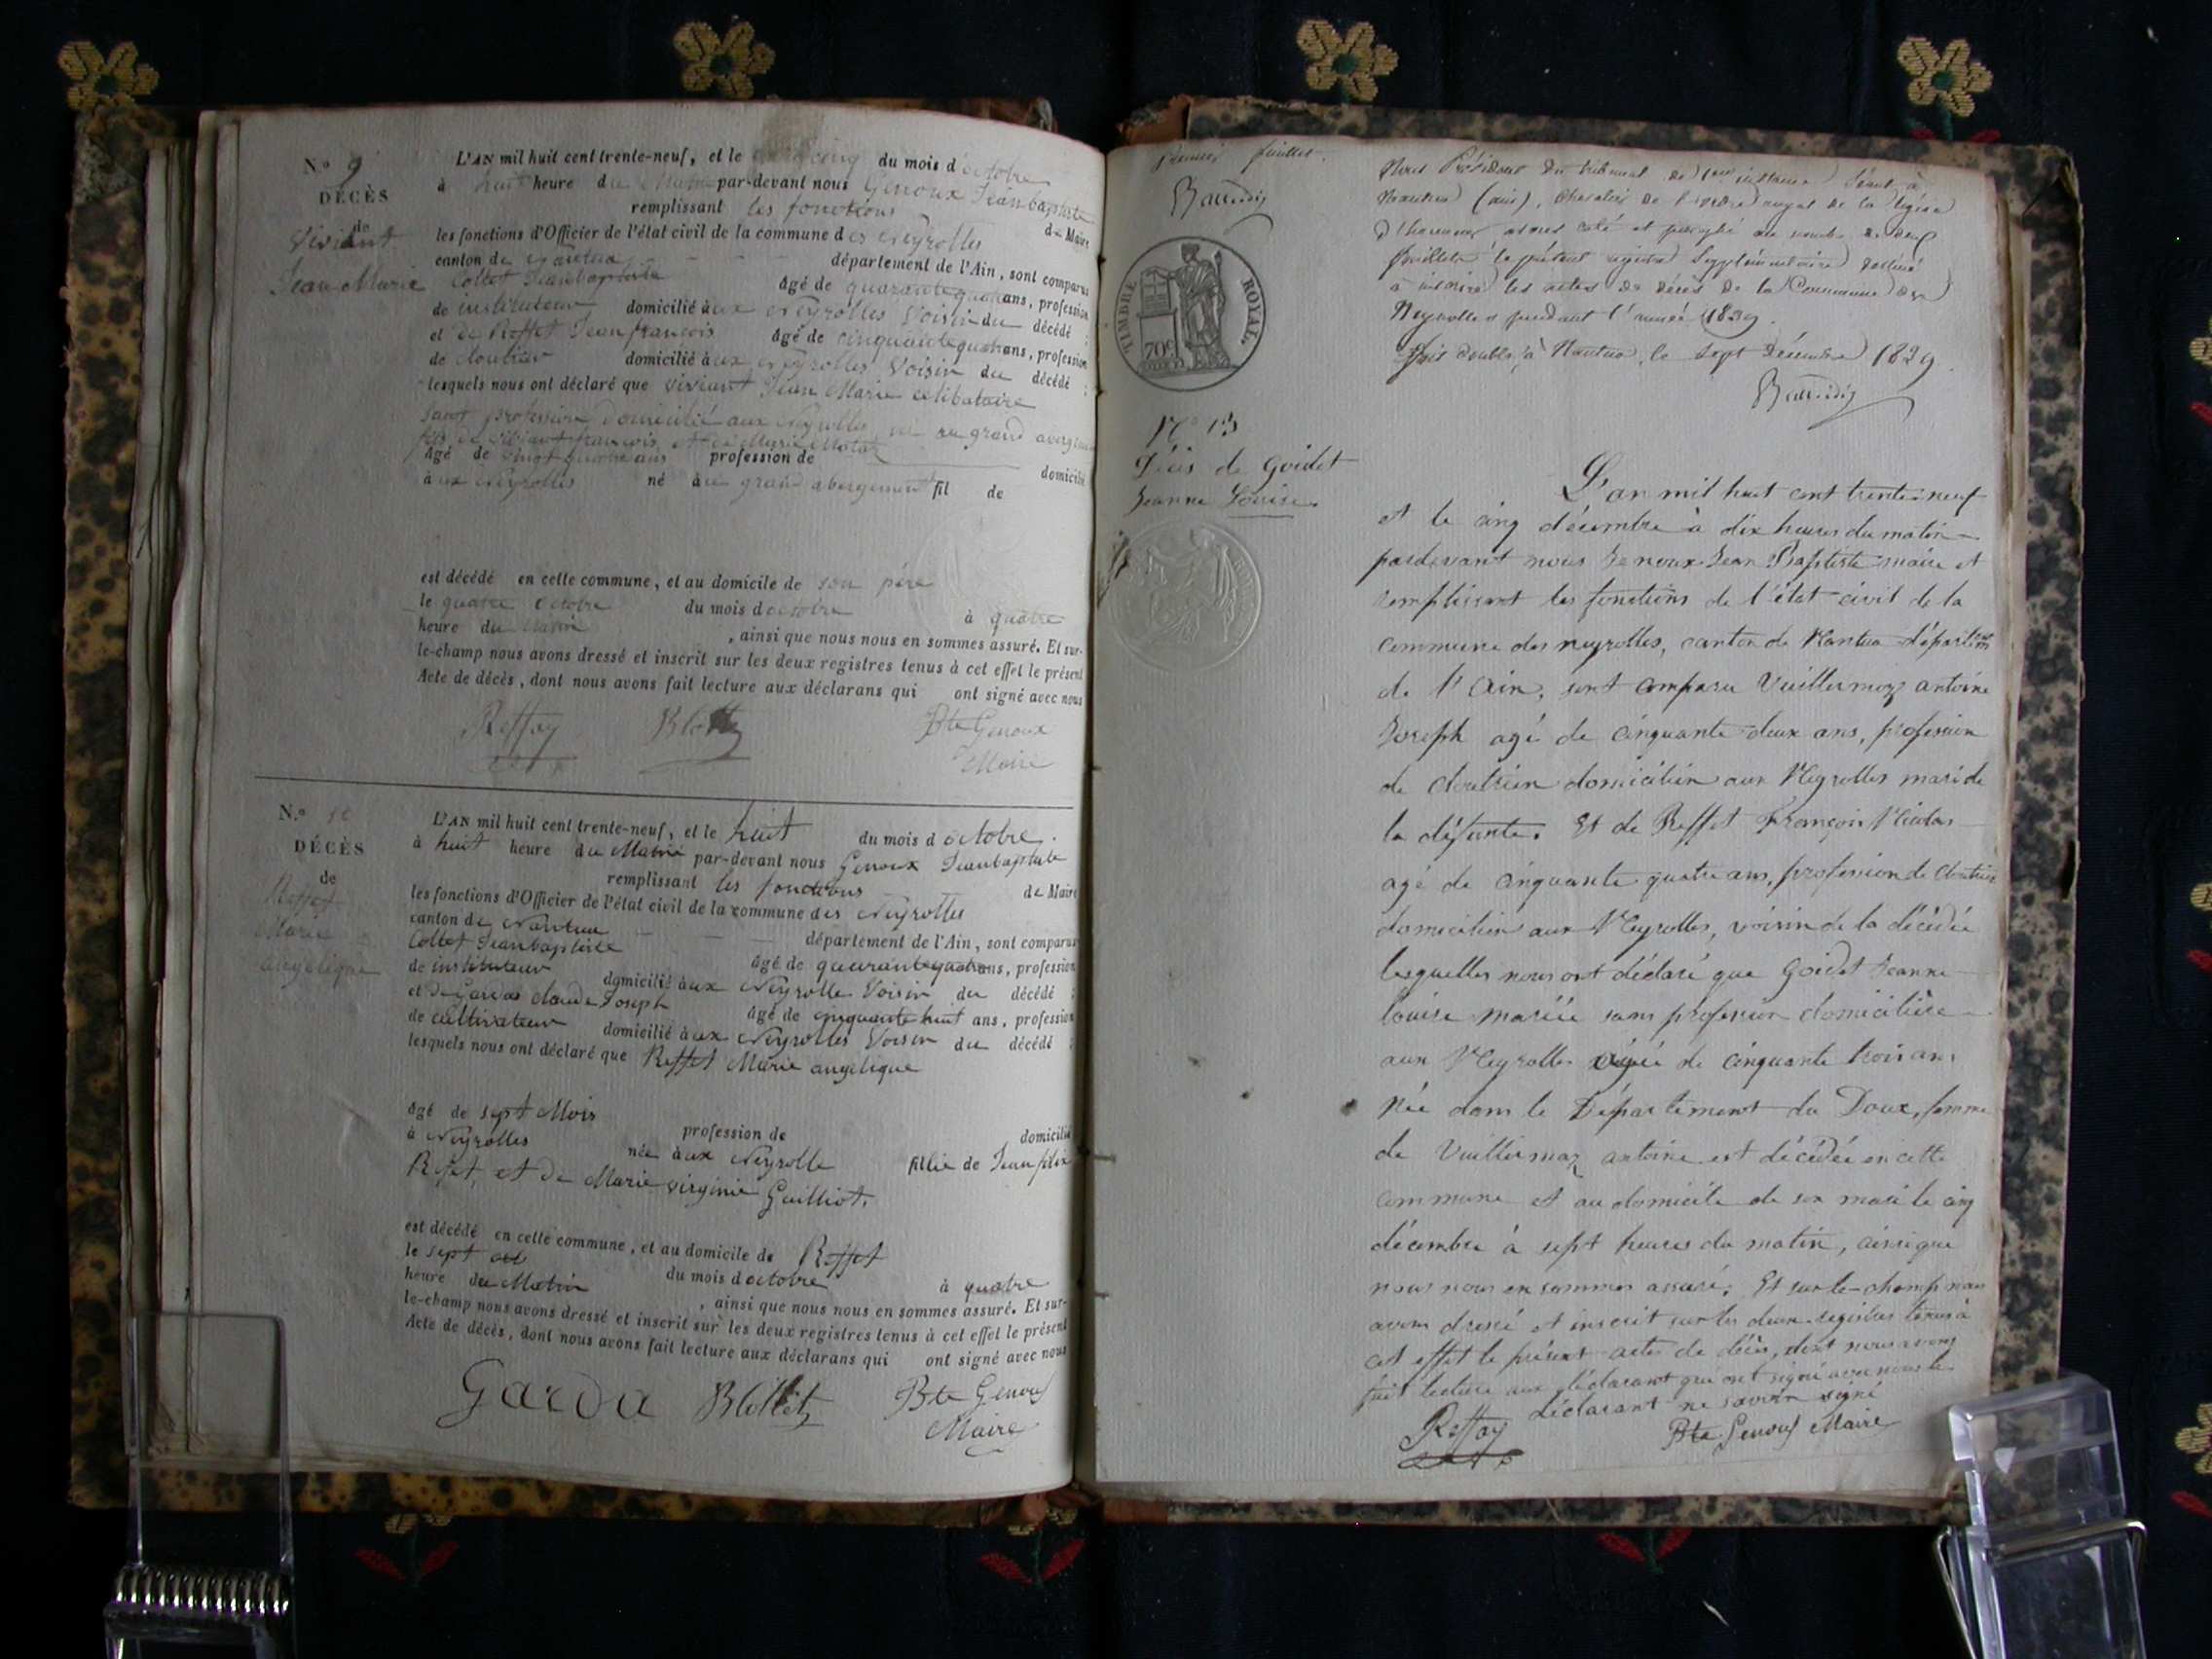 N.º 9
DÉCÈS
de
Viviant
Jean Marie
L'AN mil huit cent trente-neuf, et le cinq du mois d'octobre
à huit heure du Matin par-devant nous Genoux Jeanbaptiste
remplissant les fonctions de Maire
les fonctions d'Officier de l'état civil de la commune des Neyrolles
canton de Nantua département de l'Ain, sont comparus
Collet Jeanbaptiste âgé de quarante quatre ans, profession
de instituteur domicilié aux Neyrolles Voisin du décédé :
et de Reffet Jean françois âgé de cinquante quatre ans, profession
de cloutrier domicilié aux Neyrolles Voisin du décédé :
lesquels nous ont déclaré que Viviant Jean Marie célibataire
sans profession domicilié aux Neyrolles né au grand abergement
fils de Viviant françois et de Marie
âgé de vingt quatre ans profession de domicilié
aux Neyrolles né au grand abergement fil de
est décédé en cette commune, et au domicile de son père
le quatre octobre du mois d octobre à quatre
heure du Matin , ainsi que nous nous en sommes assuré. Et sur-
le-champ nous avons dressé et inscrit sur les deux registres tenus à cet effet le présent
Acte de décès, dont nous avons fait lecture aux déclarans qui ont signé avec nous
Reffay Bte Genoux
Maire
N.º 10
DÉCÈS
de
Reffet
Marie
angélique
L'AN mil huit cent trente-neuf, et le huit du mois d octobre.
à huit heure du Matin par-devant nous Genoux Jeanbaptiste
remplissant les fonctions de Maire
les fonctions d'Officier de l'état civil de la commune des Neyrolles
canton de Nantua département de l'Ain, sont comparus
Collet Jeanbaptiste âgé de quarante quatre ans, profession
de instituteur domicilié aux Neyrolle Voisin du décédé :
et de Gardas claude Joseph âgé de cinquante huit ans, profession
de cultivateur domicilié aux Neyrolles Voisin du décédé :
lesquels nous ont déclaré que Reffet Marie angelique
âgé de sept Mois profession de domicilié
à Neyrolles née aux Neyrolle fillie de Jean félix
Reffet, et de Marie virginie Guilliot.
est décédé en cette commune, et au domicile de Reffet
le sept du mois d octobre à quatre
heure du Matin , ainsi que nous nous en sommes assuré. Et sur-
le-champ nous avons dressé et inscrit sur les deux registres tenus à cet effet le présent
Acte de décès, dont nous avons fait lecture aux déclarans qui ont signé avec nous
Garda Bte Genoux
Maire
premier feuillet.
TIMBRE ROYAL
70c
Nous Président du tribunal de 1ere instance séant à
Nantua (ain), chevalier de l'ordre royal de la légion
d'honneur avons coté et paraphé au nombre de deux
feuillets le présent registre supplémentaire destiné
à inscrire les actes de décès de la Commune des
Neyrolles pendant l'année 1839.
fait double, à Nantua, le sept Décembre 1839.
Nº 13
Décès de Goidet
Jeanne Louise
L'an mil huit cent trente-neuf
et le cinq décembre à dix heures du matin
pardevant nous Genoux Jean Baptiste maire et
remplissant les fonctions de l'état civil de la
commune des neyrolles, canton de Nantua départem
de l'Ain, sont comparu Vuillermoz antoine
Joseph agé de cinquante deux ans, profession
de cloutrier domicilier aux Neyrolles mari de
la défunte. Et de Reffet François Nicolas
agé de cinquante quatre ans, profession de cloutrier
domicilier aux Neyrolles, voisin de la décédée
lesquelles nous ont déclaré que Goidet Jeanne
louise mariée sans profession domicilière
aux Neyrolles agée de cinquante trois ans
Née dans le Département du Doux, femme
de Vuillermoz antoine est décédée en cette
commune et au domicile de son mari le cinq
décembre à sept heures du matin, ainsi que
nous nous en sommes assuré. Et sur-le-champ nous
avons dressé et inscrit sur les deux registres tenus à
cet effet le présent acte de décès, dont nous avons
fait lecture aux déclarant qui ont signé avec nous le
déclarant ne savoir signé
Reffay Bte Genoux Maire